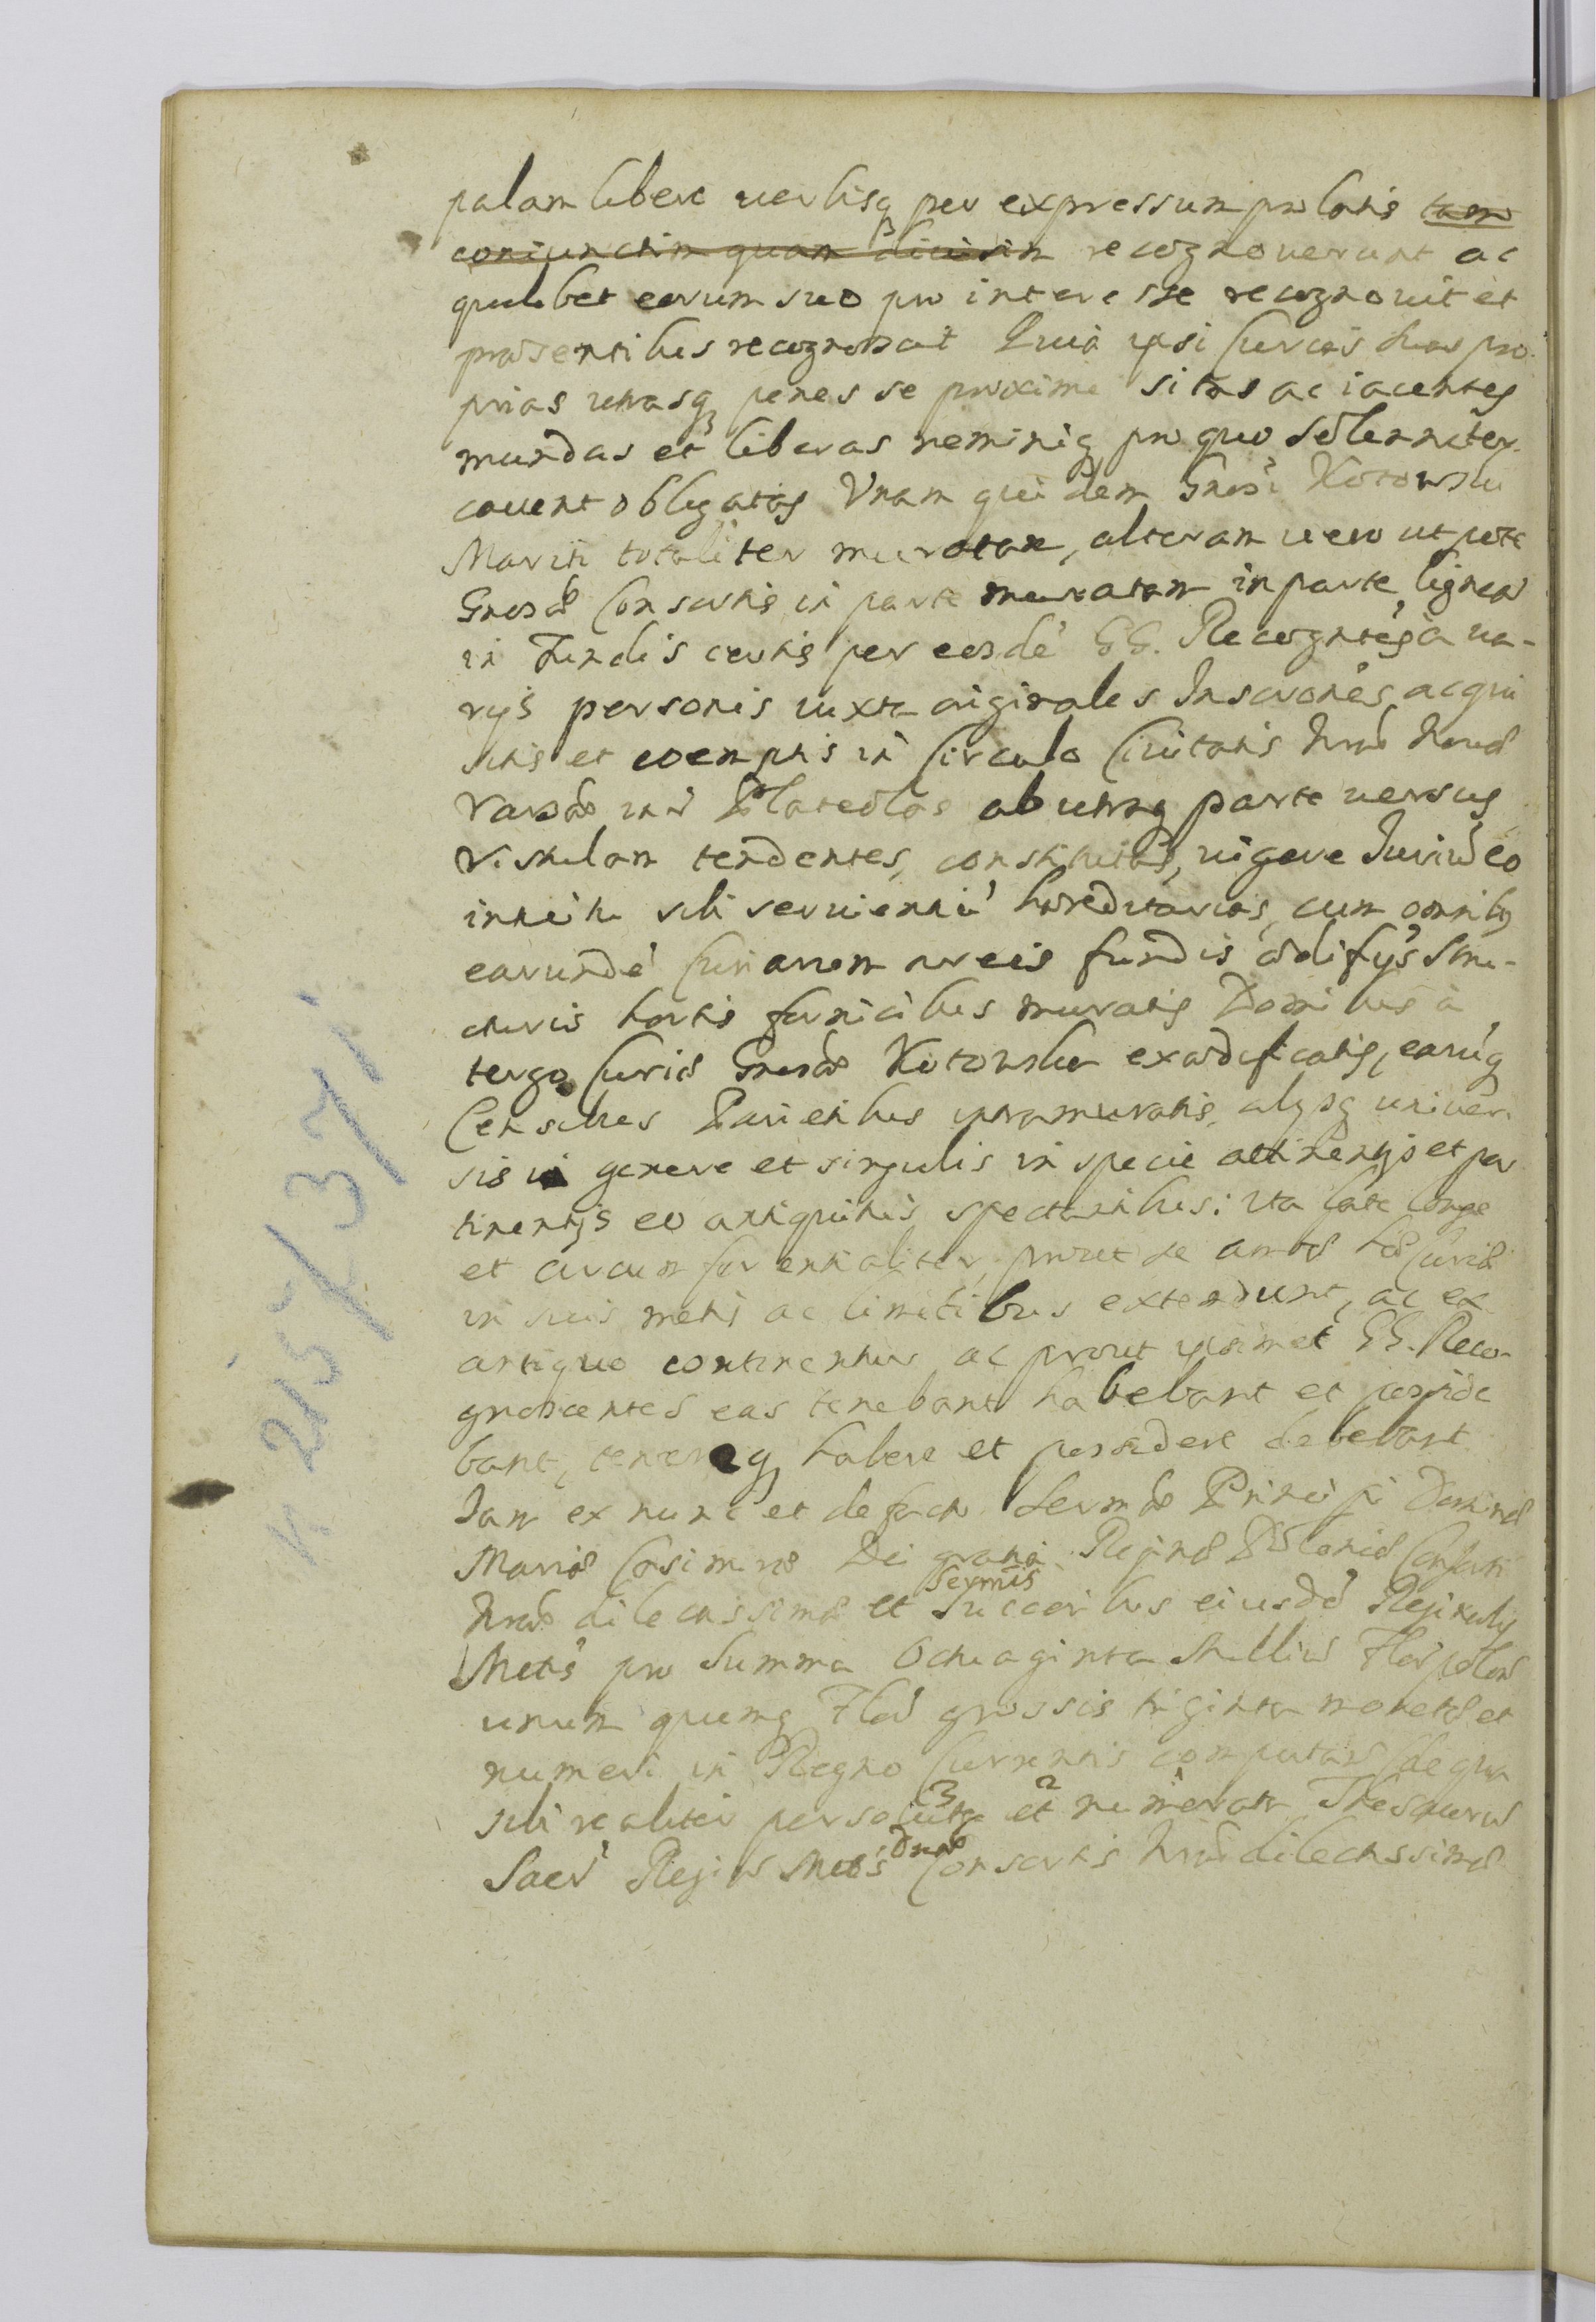 palam libere verbisq per expressum prolatis tam
coniunctim quam divisim recognoverunt ac
quilibet eorum suo pro interesse recognovit et
præsentibus recognoscit Quia ipsi Curias suas pro-
prias utrasq penes se proxime sitas ac iacentes
mundas et liberas neminiq pro quo solenniter
cavent obligatas Unam quidem Gnosi Kotowski
Mariti totaliter muratam, alteram vero utpote
Gnosæ Consortis in parte muratam in parte ligneã
in Fundis certis per eosdẽ GG. Recogntes à va-
rÿs personis iuxta originales Inscrones acqui
sitis et coemptis in Circulo Civitatis Nræ Novæ
Varsæ inter Plateolas ab utraq parte versus
Vistulam tendentes, constitutas, vigore Iuris eo
intuitu sibi servientiũ hæreditarias, cum omnibus
earundẽ Curiarum areis fundis ædifÿs stru-
cturis hortis fornicibus muratis Domibus à
tergo Curiæ Gnosæ Kotowska exædificatis, earũq
Censibus Parietibus intramuratis, alÿsq univer-
sis in genere et singulis in specie attinentÿs et per
tinentÿs ex antiquitus spectantibus: Ita late longe
et circumferentialiter, prout se ambæ hæ Curiæ
in suis metis ac limitibus extendunt, ac ex
antiquo continentur ac prout ipsimet GG. Reco-
gnoscentes eas tenebant habebant et posside
bant, tenereq habere et possidere debebant
Iam ex nunc et de facto Sermæ Principi Dominæ
Mariæ Casimiræ Dei gratia Reginæ Poloniæ Consorti
Sermis
Nræ dilectissimæ et Succoribus eiusdẽ Reginalis
Mattis pro Summa Octuaginta Millium Flor polon
unum quemq Flor grossis triginta monetæ et
numeri in Regno Currentis computan de qua
3 2
sibi realiter persoluta et numerata Thesaurus
Dnæ
Sacræ Regiæ Mattis Consortis Nræ dilectissimæ
N 215/37